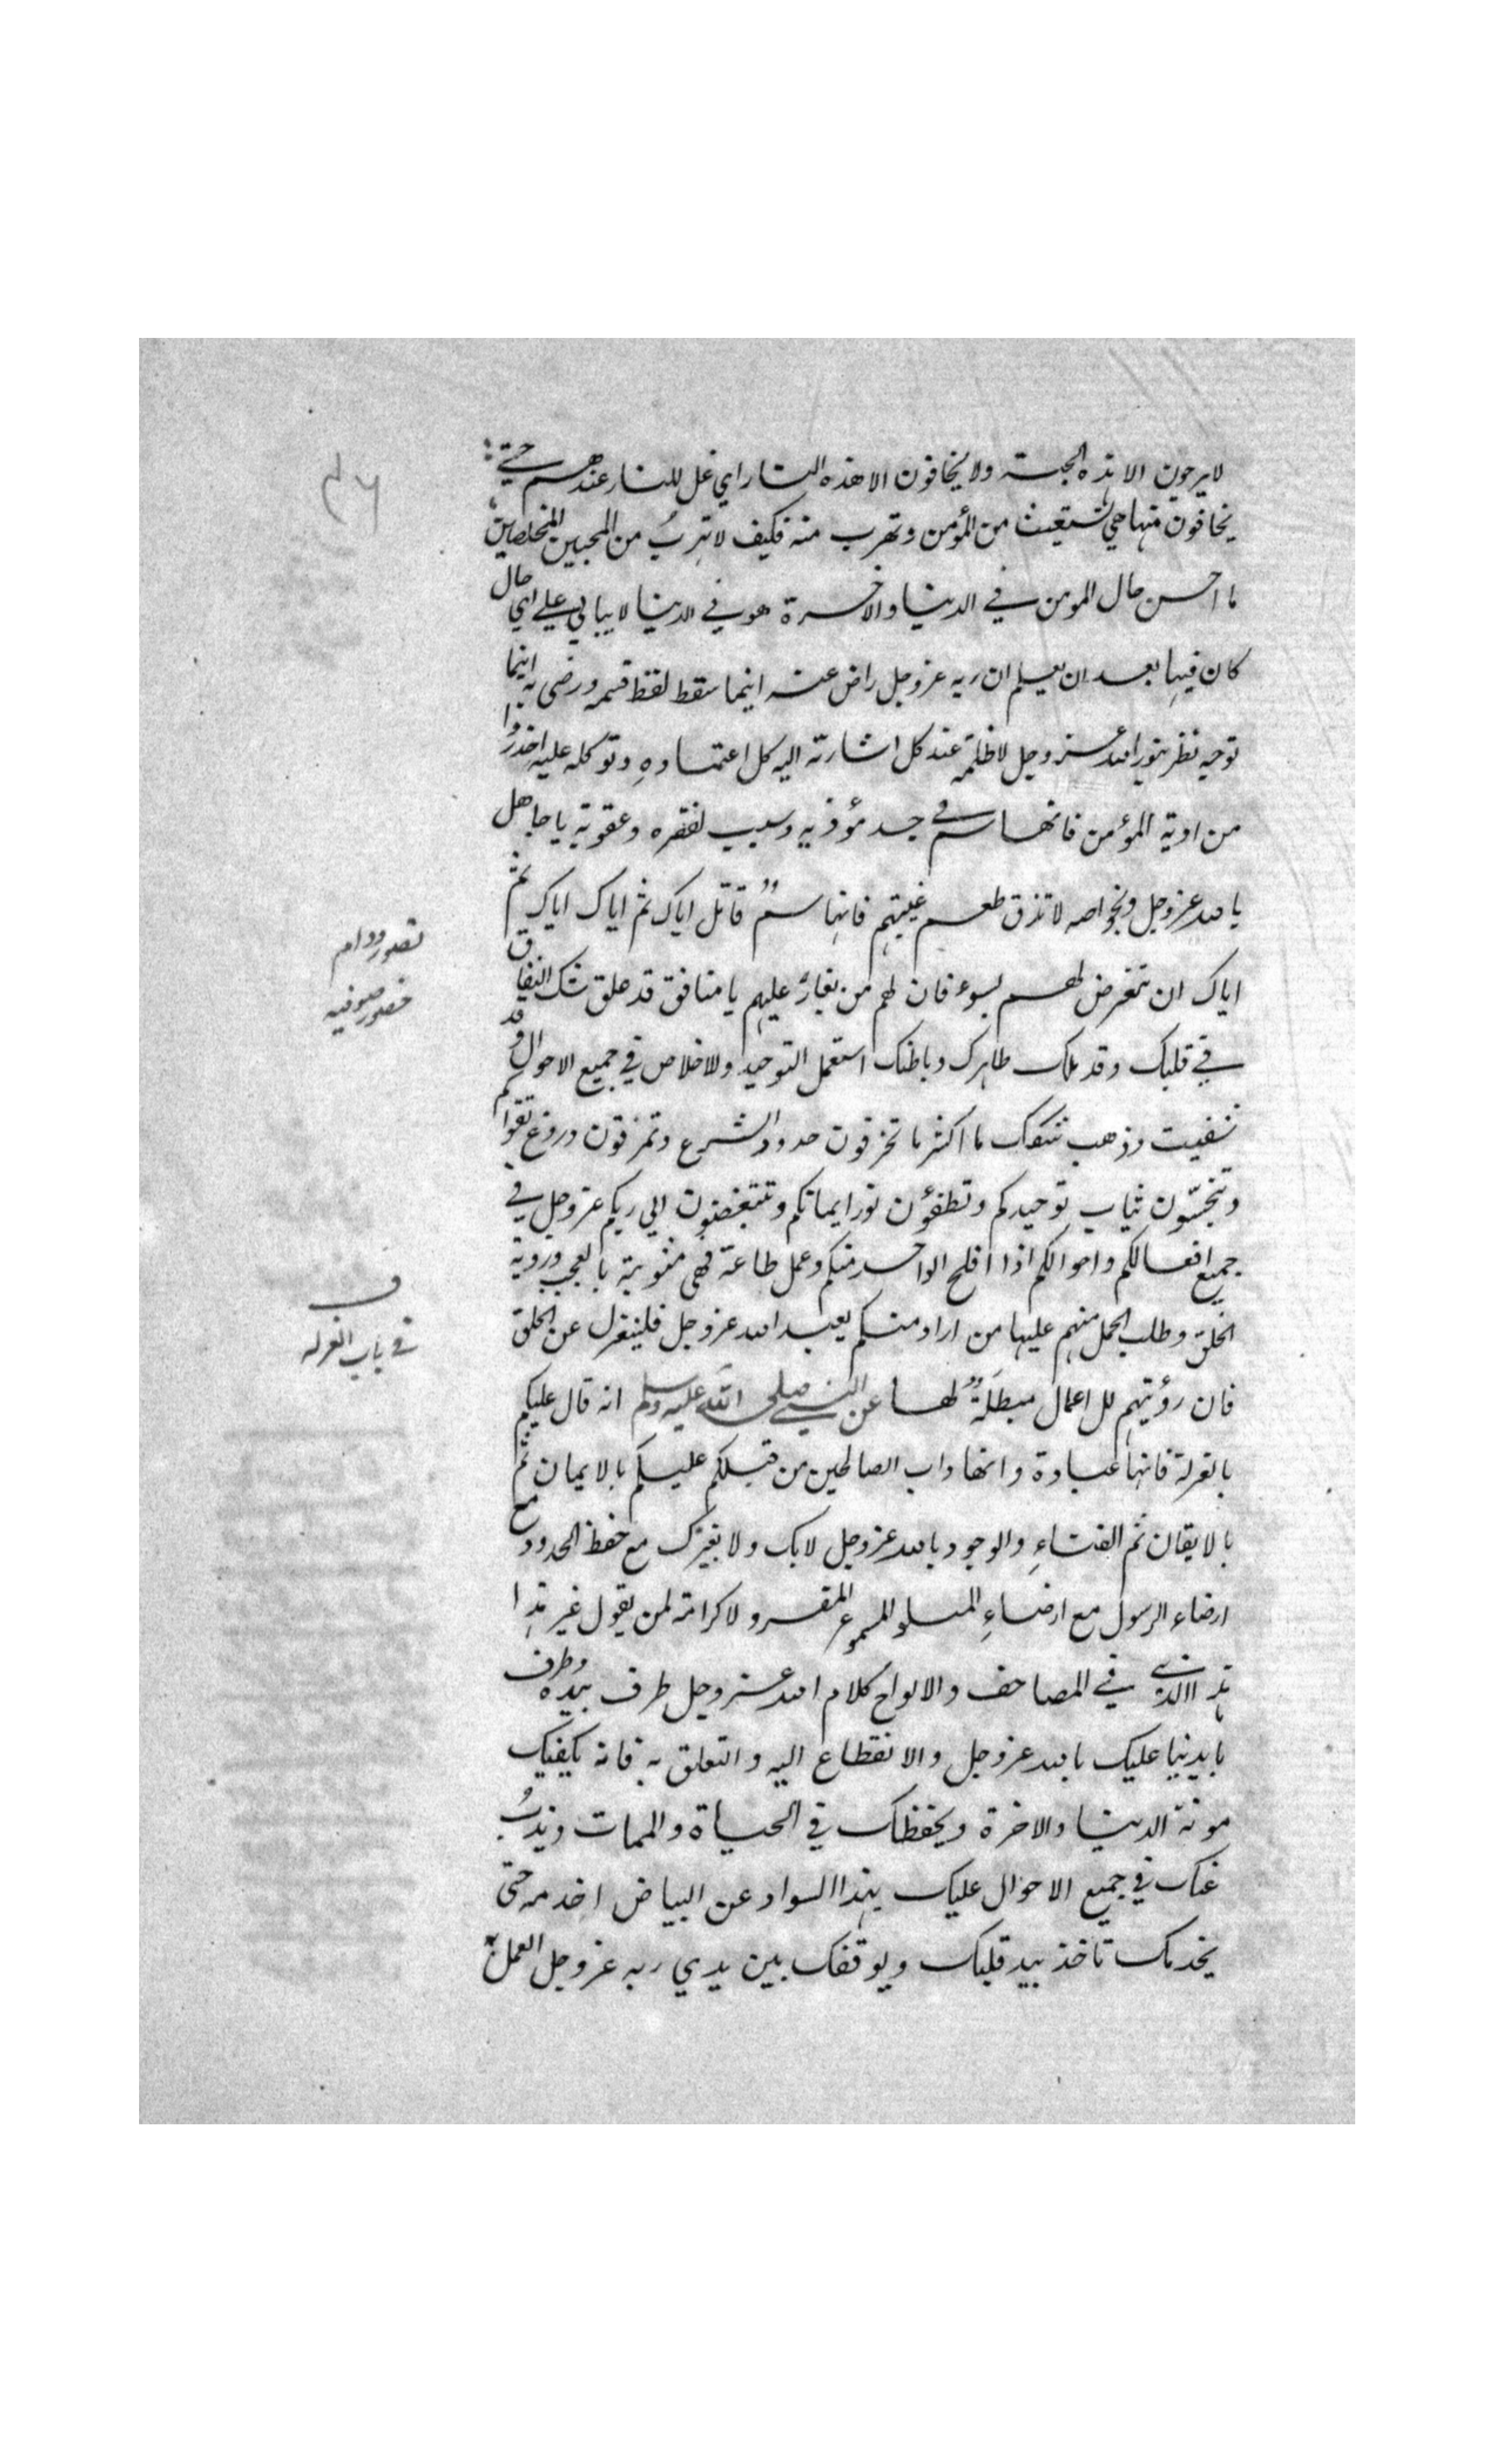 لا يرجون الا هذه الجنة ولا يخافون الا هذه النار اي غل للنار عندهم حتى
يخافون منها هي تستغيث من المؤمن وتهرب منه فكيف لا تهربُ من المحبين المخلصين
ما احسن حال المومن في الدنيا والاخرة هو في الدنيا لا يبالي على اي حال
كان فيها بعد ان يعلم ان ربه عز وجل راض عنه اينما سقط لقط قسمه ورضى به اينما
توجه نظر بنور الله عز وجل لا ظلمة عنده كل اشارته اليه كل اعتماده وتوكله عليه احذروا
من اذية المؤمن فانها سم في جسد مؤذيه وسبب لفقره وعقوبة يا جاهل
بالله عز وجل وبخواصه لا تذق طعم غيبتهم فانها سمٌّ قاتل اياك ثم اياك اياك ثم
اياك ان تتعرض لهم بسوء فان لهم من يغارُ عليهم يا منافق قد علق شك النفاق
في قلبك وقد ملك ظاهرك وباطنك استعمل التوحيد والاخلاص في جميع الاحوال وقد
شفيت وذهب شكك ما اكثر ما تخرقون حدود الشرع وتمزقون دروع تقواكم
وتنجّسون ثياب توحيدكم وتطفؤن نور ايمانكم وتتبغضون الي ربكم عز وجل في
جميع افعالكم واحوالكم اذا افلح الواحد منكم وعمل طاعة فهي مشوبة بالعجب وروية
الخلق وطلب الحمل منهم عليها من اراد منكم يعبد الله عز وجل فلينعزل عن الخلق
فان رؤيتهم لل اعمال مبطلةٌ لها عن النبي صلى الله عليه وسلم انه قال عليكم
بالعزلة فانها عبادة وانها داب الصالحين من قبلكم عليكم بالايمان ثم
بالايقان ثم الفناءِ والوجود بالله عز وجل لا بك ولا بغيرك مع حفظ الحدود مع
ارضاء الرسول مع ارضاءِ المتلو المسموع المقرو لا كرامة لمن يقول غير هذا
هذا الذي في المصاحف والالواح كلام الله عز وجل طرف بيده وطرف
بايدينا عليك بالله عز وجل والانقطاع اليه والتعلق به فانه يكفيك
مونة الدنيا والاخرة ويحفظك في الحياة والممات ويذبُ
عنك في جميع الاحوال عليك بهذا السواد عن البياض اخدمه حتى
يخدمك تاخذ بيد قلبك ويوقفك بين يدي ربه عز وجل العمل به
٤٦
تصور ودام
حضور صوفيه
ف
في باب العزله